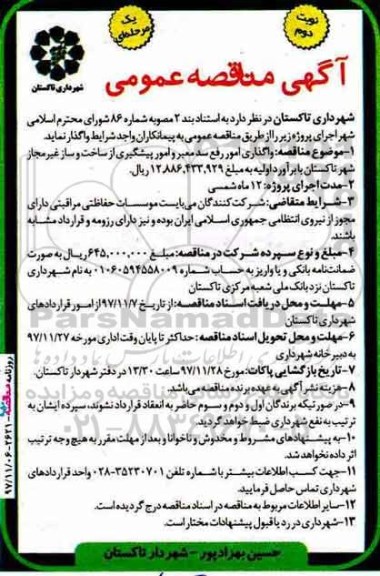 نوبت دوم
یک مرحله‌ای
شهرداری تاکستان
آگهی مناقصه عمومی
شهرداری تاکستان در نظر دارد به استناد بند ۲ مصوبه شماره ۸۶ شورای محترم اسلامی
شهر اجرای پروژه زیر را از طریق مناقصه عمومی به پیمانکاران واجد شرایط واگذار نماید.
۱-موضوع مناقصه: واگذاری امور رفع سد معبر و امور پیشگیری از ساخت و ساز غیرمجاز
شهر تاکستان با برآورد اولیه به مبلغ ۱۲،۸۸۶،۴۳۳،۹۲۹ ریال.
۲-مدت اجرای پروژه: ۱۲ ماه شمسی
۳-شرایط متقاضی: شرکت کنندگان می‌بایست موسسات حفاظتی مراقبتی دارای
مجوز از نیروی انتظامی جمهوری اسلامی ایران بوده و نیز دارای رزومه و قرارداد مشابه
باشند.
۴-مبلغ و نوع سپرده شرکت در مناقصه: مبلغ ۶۴۵،۰۰۰،۰۰۰ ریال به صورت
ضمانت‌نامه بانکی و یا واریز به حساب شماره ۰۱۰۶۰۵۹۴۵۵۸۰۰۹ به نام شهرداری
تاکستان نزد بانک ملی شعبه مرکزی تاکستان
۵-مهلت و محل دریافت اسناد مناقصه: از تاریخ ۹۷/۱۱/۷ از امور قراردادهای
شهرداری تاکستان
۶-مهلت و محل تحویل اسناد مناقصه: حداکثر تا پایان وقت اداری مورخه ۹۷/۱۱/۲۷
به دبیرخانه شهرداری
۷-تاریخ بازگشایی پاکات: مورخ ۹۷/۱۱/۲۸ ساعت ۱۳/۳۰ در دفتر شهردار تاکستان.
۸-هزینه نشر آگهی به عهده برنده مناقصه می‌باشد.
۹-در صورتیکه برندگان اول و دوم و سوم حاضر به انعقاد قرارداد نشوند، سپرده ایشان به
ترتیب به نفع شهرداری ضبط خواهد گردید.
۱۰-به پیشنهادهای مشروط و مخدوش و ناخوانا و بعد از مهلت مقرر به هیچ وجه ترتیب
اثر داده نخواهد شد.
۱۱-جهت کسب اطلاعات بیشتر با شماره تلفن ۳۵۲۳۰۷۰۱-۰۲۸ واحد قراردادهای
شهرداری تماس حاصل فرمایید.
۱۲-سایر اطلاعات مربوط به مناقصه در اسناد مناقصه درج گردیده است.
۱۳-شهرداری در رد یا قبول پیشنهادات مختار است.
حسین بهزادپور - شهردار تاکستان